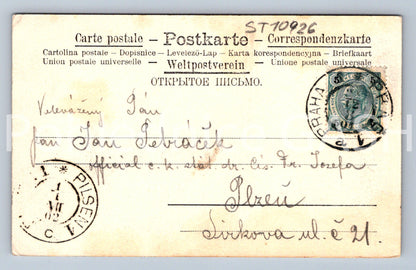 ST10926
Carte postale – Postkarte – Correspondenzkarte
Cartolina postale – Dopisnice – Levelező-Lap – Karta korespondencyjna – Briefkaart
Union postale universelle – Weltpostverein – Unione postale universale
ОТКРЫТОЕ ПИСЬМО.
PRAHA 1
PRAG
Velevážený Pán
pan Jan Petráček
official c. k. stát. dr. Cís. Fr. Josefa
Plzeň
PILSEN 1
1
VII
02
C
ul. č 21.